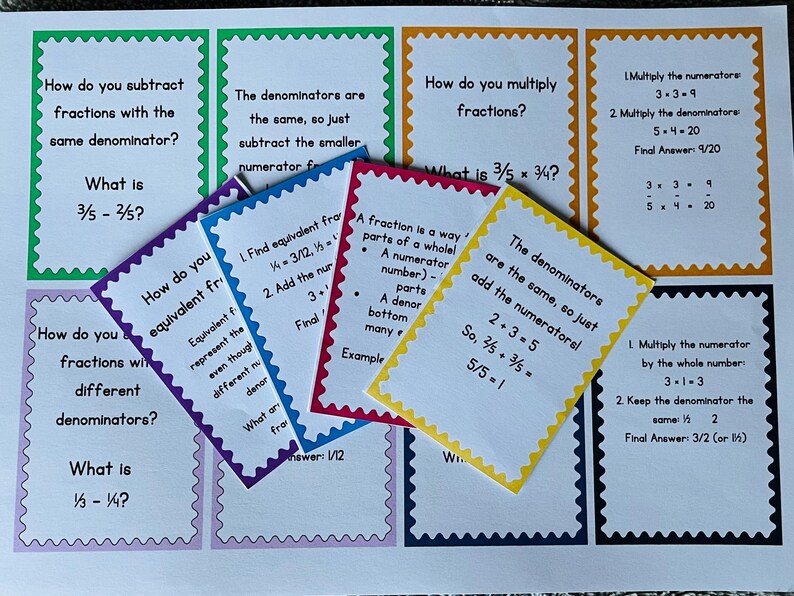 How do you subtract
fractions with the
same denominator?
What is
3/5 - 2/5?
The denominators are
the same, so just
subtract the smaller
numerator
How do you multiply
fractions?
What is 3/5 × 3/4?
1.Multiply the numerators:
3 × 3 = 9
2. Multiply the denominators:
5 × 4 = 20
Final Answer: 9/20
3 x 3 = 9
- - -
5 x 4 = 20
How do you
equivalent
Equivalent
represent the
even though
different
What
1. Find equivalent
1/4 = 3/12, 1/3 =
2. Add the
3 +
Final
A fraction is a way
parts of a whole!
• A numerator
number) -
parts
• A
bottom
many
Example
The denominators
are the same, so just
add the numerators!
2 + 3 = 5
So, 2/5 + 3/5 =
5/5 = 1
How do you
fractions
different
denominators?
What is
1/3 - 1/4?
Answer: 1/12
1. Multiply the numerator
by the whole number:
3 × 1 = 3
2. Keep the denominator the
same: 1/2 2
Final Answer: 3/2 (or 1½)